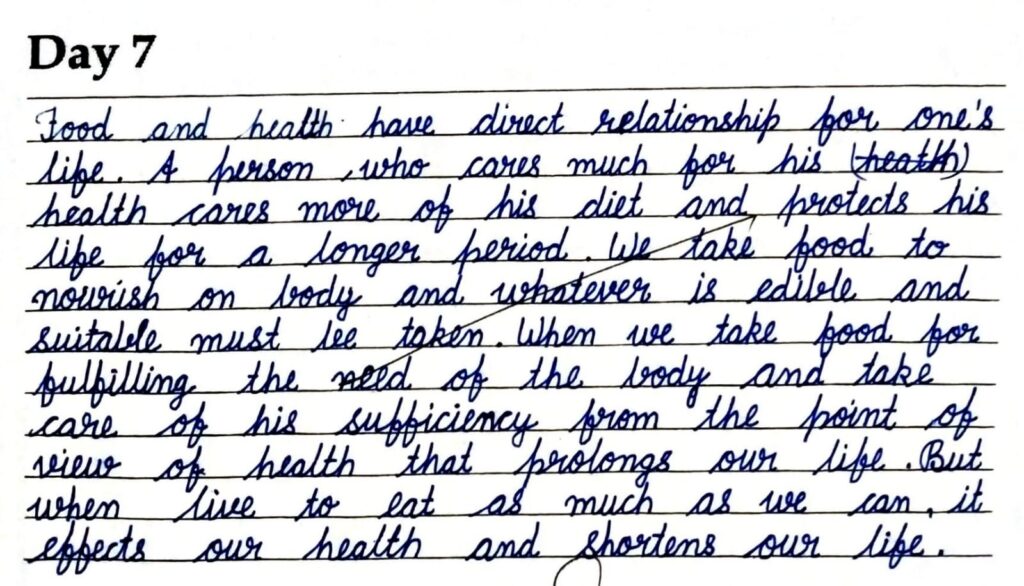 Day 7
Food and health have direct relationship for one's
life. A person, who cares much for his (heatth)
health cares more of his diet and protects his
life for a longer period. We take food to
nourish on body and whatever is edible and
suitable must be taken. When we take food for
fulfilling the need of the body and take
care of his sufficiency from the point of
view of health that prolongs our life. But
when live to eat as much as we can, it
effects our health and shortens our life.